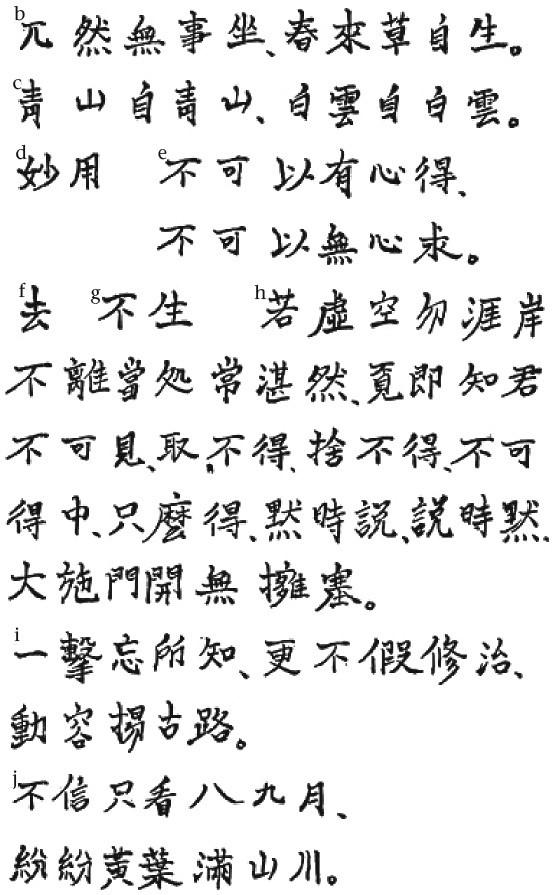 b 兀然無事坐、春來草自生。
c 靑山自靑山、白雲自白雲。
d 妙用 e 不可以有心得、
不可以無心求。
f 去 g 不生 h 若虛空勿涯岸
不離當処常湛然、覓即知君
不可見、取、不得、捨不得、不可
得中、只麼得、黙時説、説時黙、
大施門開無擁塞。
i 一擊忘所知、更不假修治、
動容揚古路。
j 不信只看八九月、
紛紛黃葉滿山川。